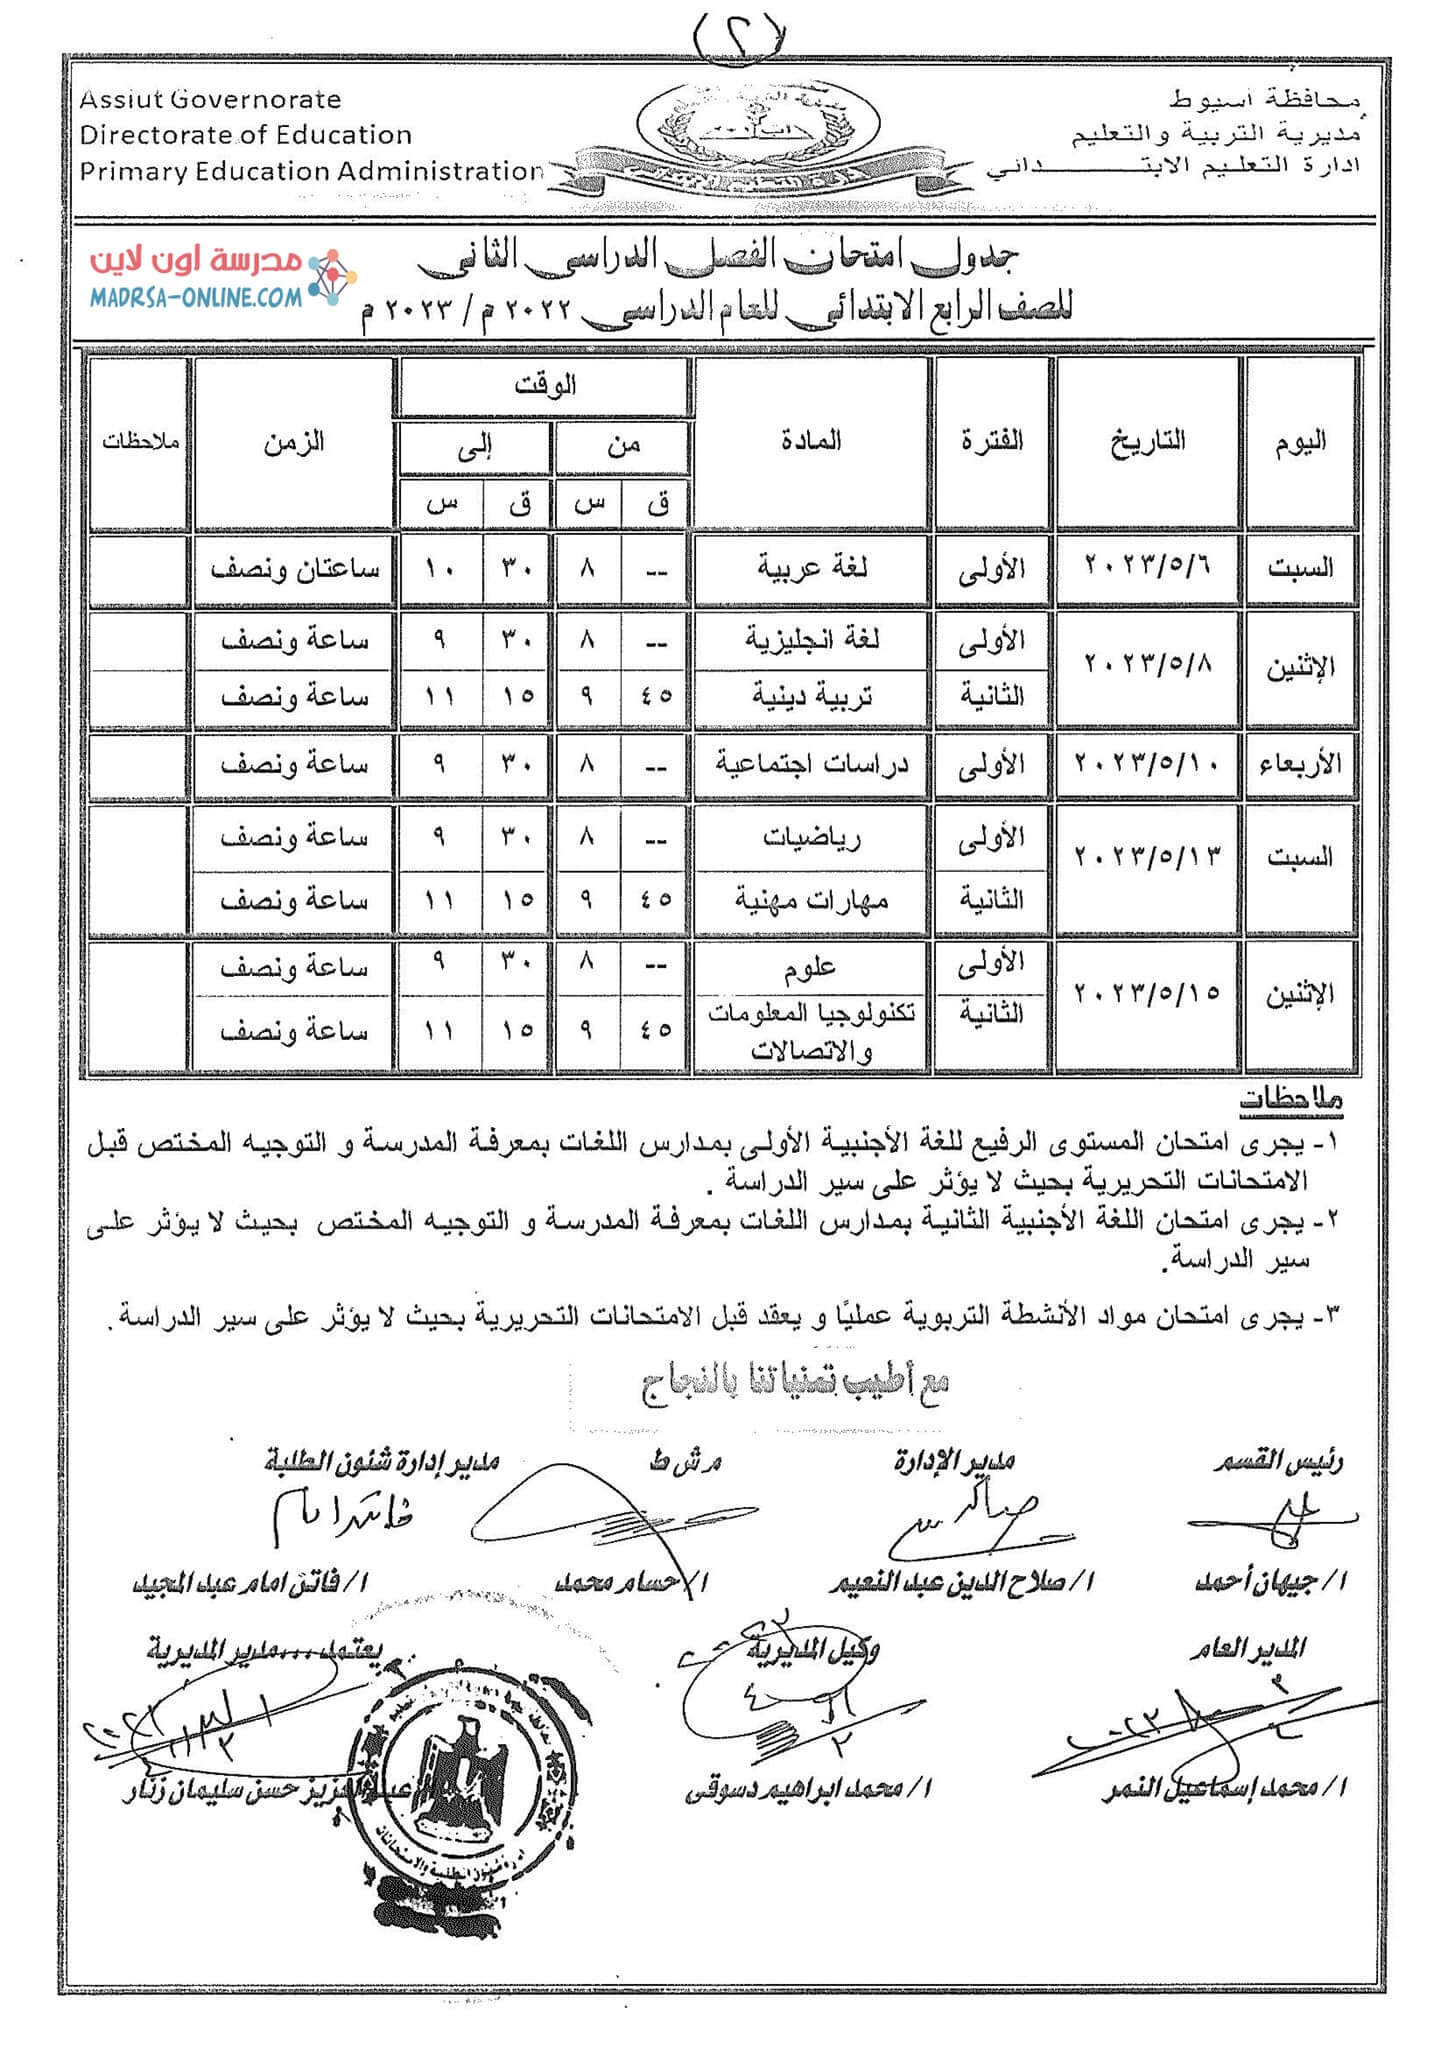 (٢)
Assiut Governorate
Directorate of Education
Primary Education Administration
محافظة أسيوط
مديرية التربية والتعليم
ادارة التعليم الابتدائي
مدرسة اون لاين
MADRSA-ONLINE.COM
جدول امتحان الفصل الدراسى الثانى
للصف الرابع الابتدائى للعام الدراسى ٢٠٢٢ م / ٢٠٢٣ م
اليوم التاريخ الفترة المادة الوقت الزمن ملاحظات
من إلى
ق س ق س
السبت ٢٠٢٣/٥/٦ الأولى لغة عربية -- ٨ ٣٠ ١٠ ساعتان ونصف
الإثنين ٢٠٢٣/٥/٨ الأولى لغة انجليزية -- ٨ ٣٠ ٩ ساعة ونصف
الثانية تربية دينية ٤٥ ٩ ١٥ ١١ ساعة ونصف
الأربعاء ٢٠٢٣/٥/١٠ الأولى دراسات اجتماعية -- ٨ ٣٠ ٩ ساعة ونصف
السبت ٢٠٢٣/٥/١٣ الأولى رياضيات -- ٨ ٣٠ ٩ ساعة ونصف
الثانية مهارات مهنية ٤٥ ٩ ١٥ ١١ ساعة ونصف
الإثنين ٢٠٢٣/٥/١٥ الأولى علوم -- ٨ ٣٠ ٩ ساعة ونصف
الثانية تكنولوجيا المعلومات ٤٥ ٩ ١٥ ١١ ساعة ونصف
والاتصالات
ملاحظات
١- يجرى امتحان المستوى الرفيع للغة الأجنبية الأولى بمدارس اللغات بمعرفة المدرسة و التوجيه المختص قبل
الامتحانات التحريرية بحيث لا يؤثر على سير الدراسة .
٢- يجرى امتحان اللغة الأجنبية الثانية بمدارس اللغات بمعرفة المدرسة و التوجيه المختص بحيث لا يؤثر على
سير الدراسة.
٣- يجرى امتحان مواد الأنشطة التربوية عمليًا و يعقد قبل الامتحانات التحريرية بحيث لا يؤثر على سير الدراسة .
مع أطيب تمنياتنا بالنجاح
رئيس القسم مدير الإدارة م ش ط مدير إدارة شئون الطلبة
ا/ جيهان أحمد ا/ صلاح الدين عبد النعيم ا/ حسام محمد ا/ فاتن امام عبد المجيد
المدير العام وكيل المديرية يعتمد ... مدير المديرية
ا/ محمد إسماعيل النمر ا/ محمد ابراهيم دسوقى عبد العزيز حسن سليمان زنار